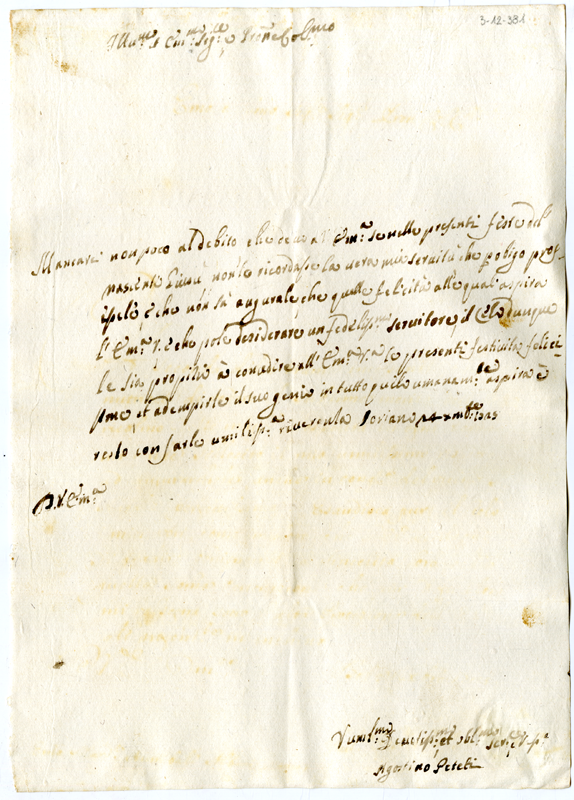 3-12-381
Ill.mo e Em.mo Sig.re e Prone Col.mo
Mancarei non poco al debito che devo a l'Em.a se nelle presenti feste del
nascente Giesù non le ricordasse la vera mia servitù che
è che non sa augurale che quelle felicità alle qual'aspira
l'Em.a V. e che pole desiderare un fedeliss.mo servitore, il Celo dunque
le sia propitio à concedire all'Em.a V.a le presenti festività felici
sime et adempirle il suo genio in tutto quelo umanam.te aspira è
resto con farle umilis.a riverenza Soriano 24
D. V. Em.a
Um.mo Devotiss.mo et obl.mo Ser.
Agostino Peteti